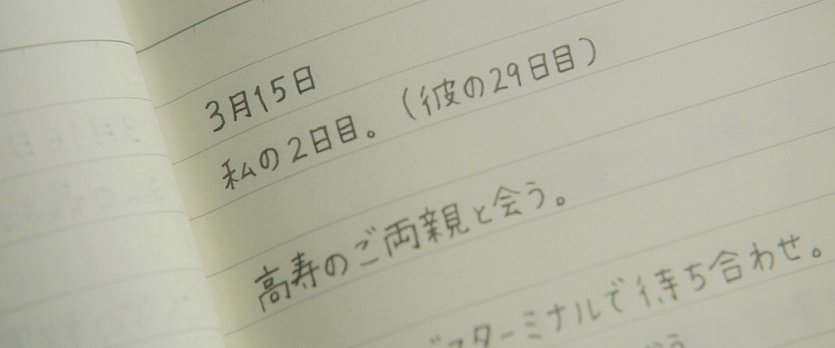 3月15日
私の2日目。(彼の29日目)
高寿のご両親と会う。
スターミナルで待ち合わせ。